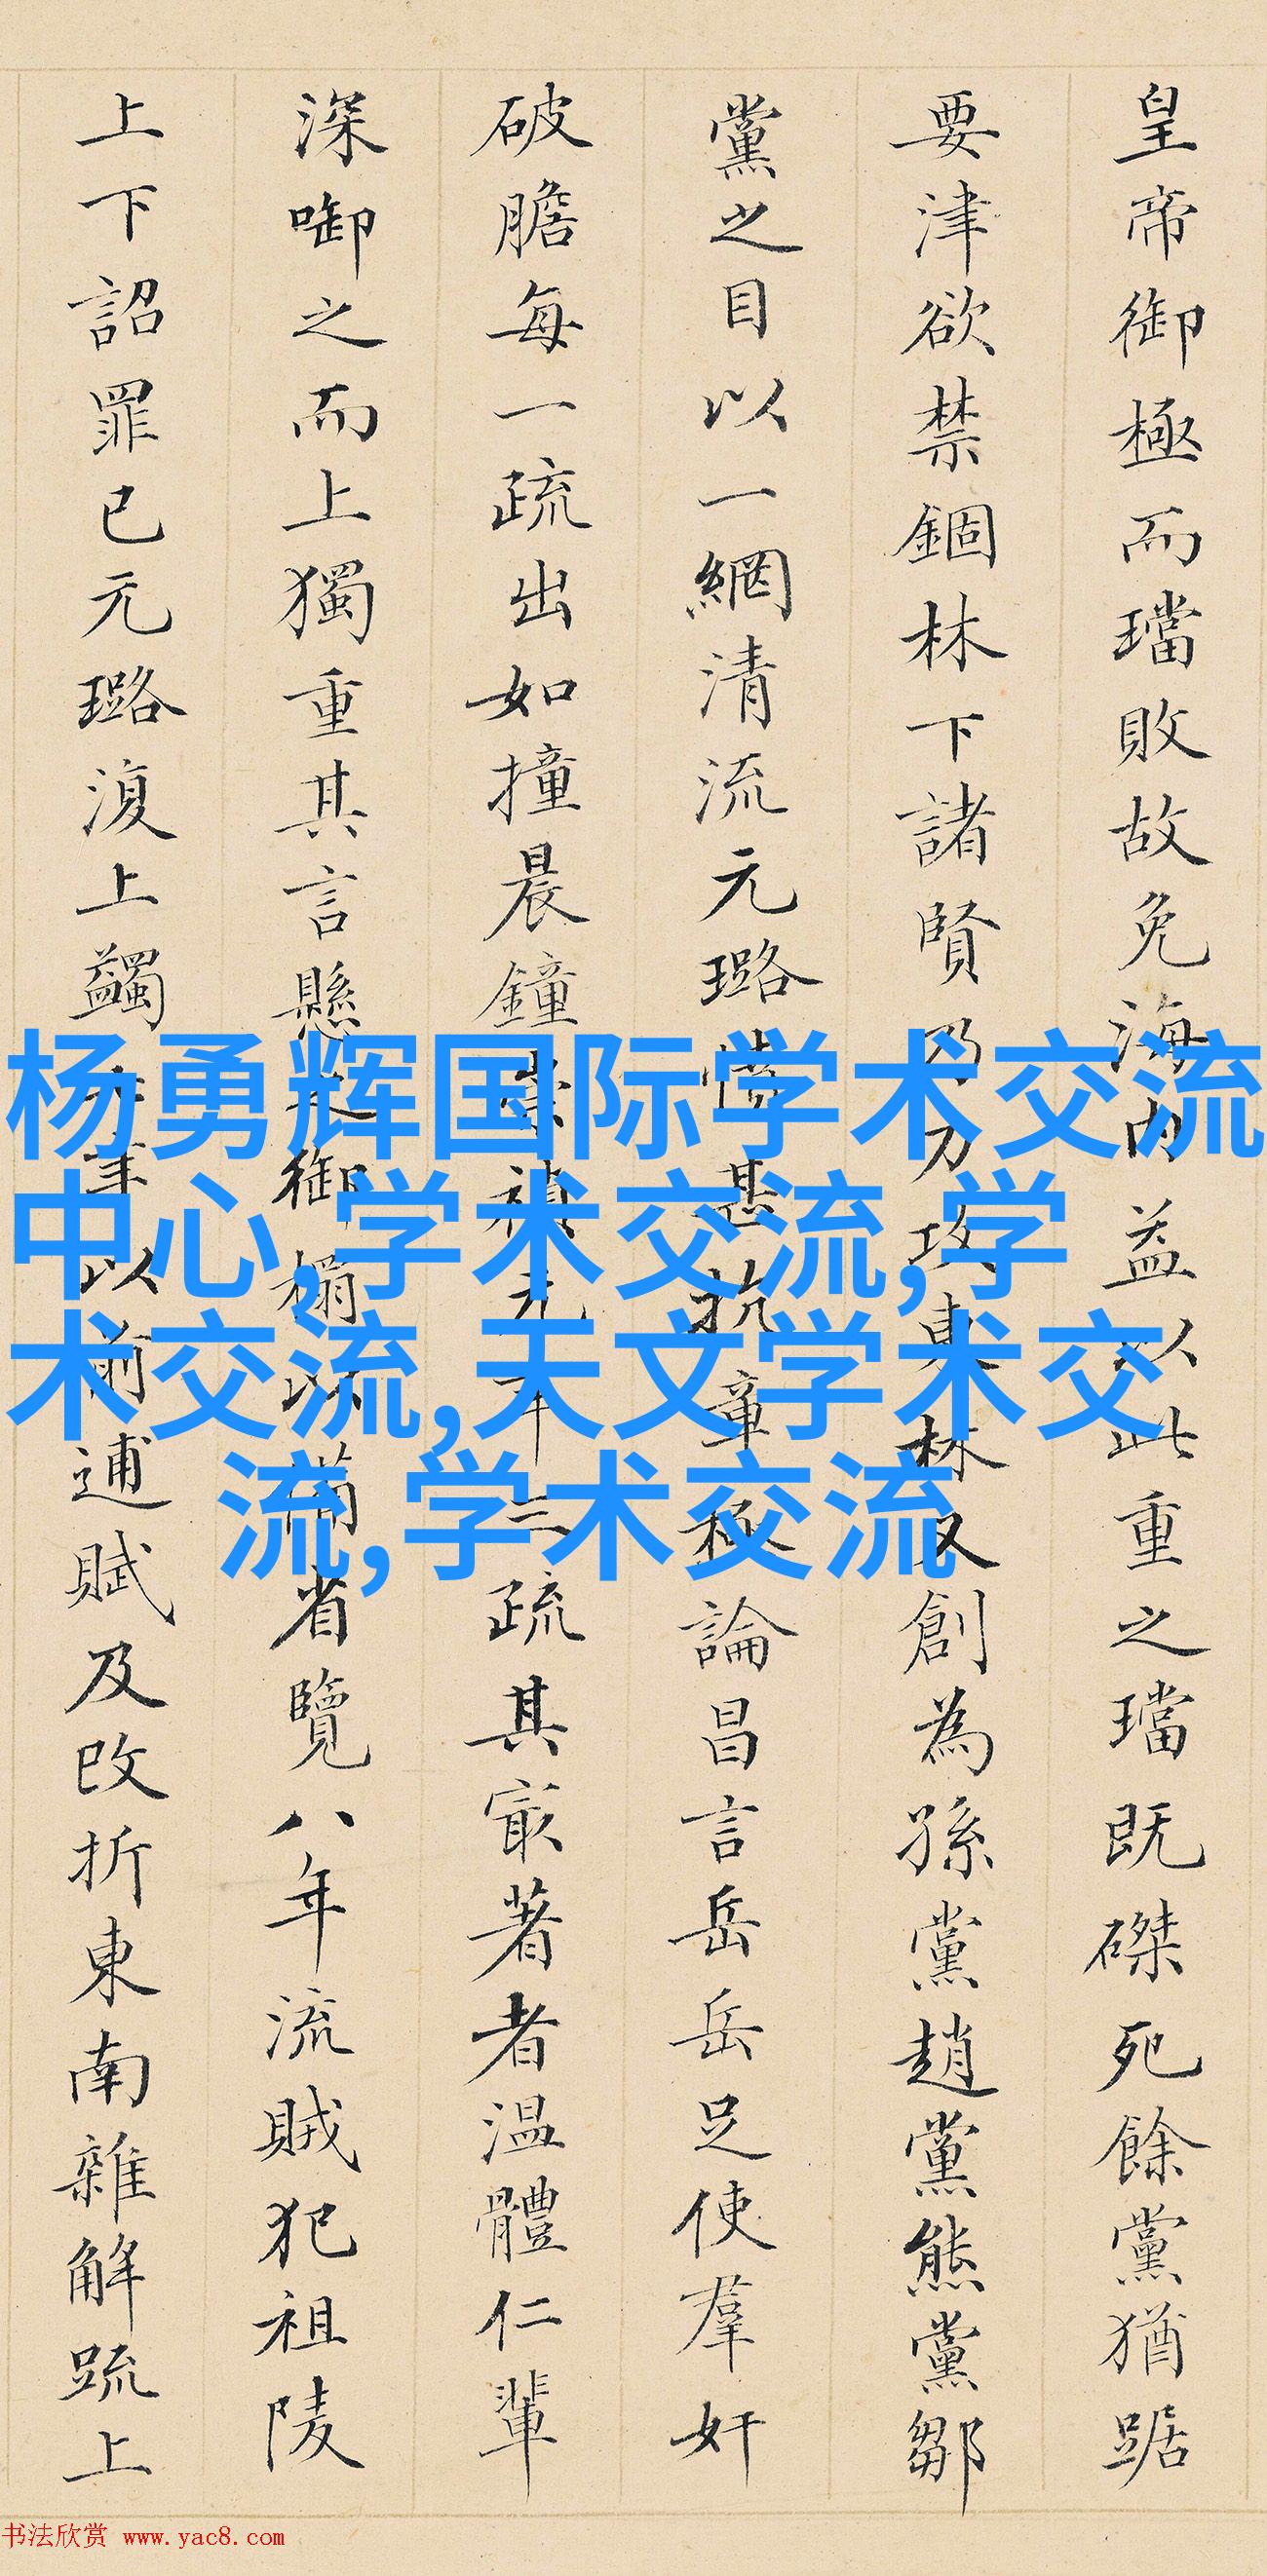 皇帝御極而璫敗故免海內益以此重之璫既磔死餘黨猶踞
要津欲禁錮林下諸賢乃力攻東林又創為孫黨趙黨熊黨鄒
黨之目以一網清流元璐憤甚抗章極論昌言岳岳足使羣奸
破膽每一疏出如撞晨鐘崇禎元年三疏其寂著者溫體仁輩
深啣之而上獨重其言懸之御榻以備省覽八年流賊犯祖陵
上下詔罪已元璐復上蠲年以前逋賦及改折東南雜解疏上
杨勇辉国际学术交流
中心,学术交流,学
术交流,天文学术交
流,学术交流
书法欣赏 www.yac8.com